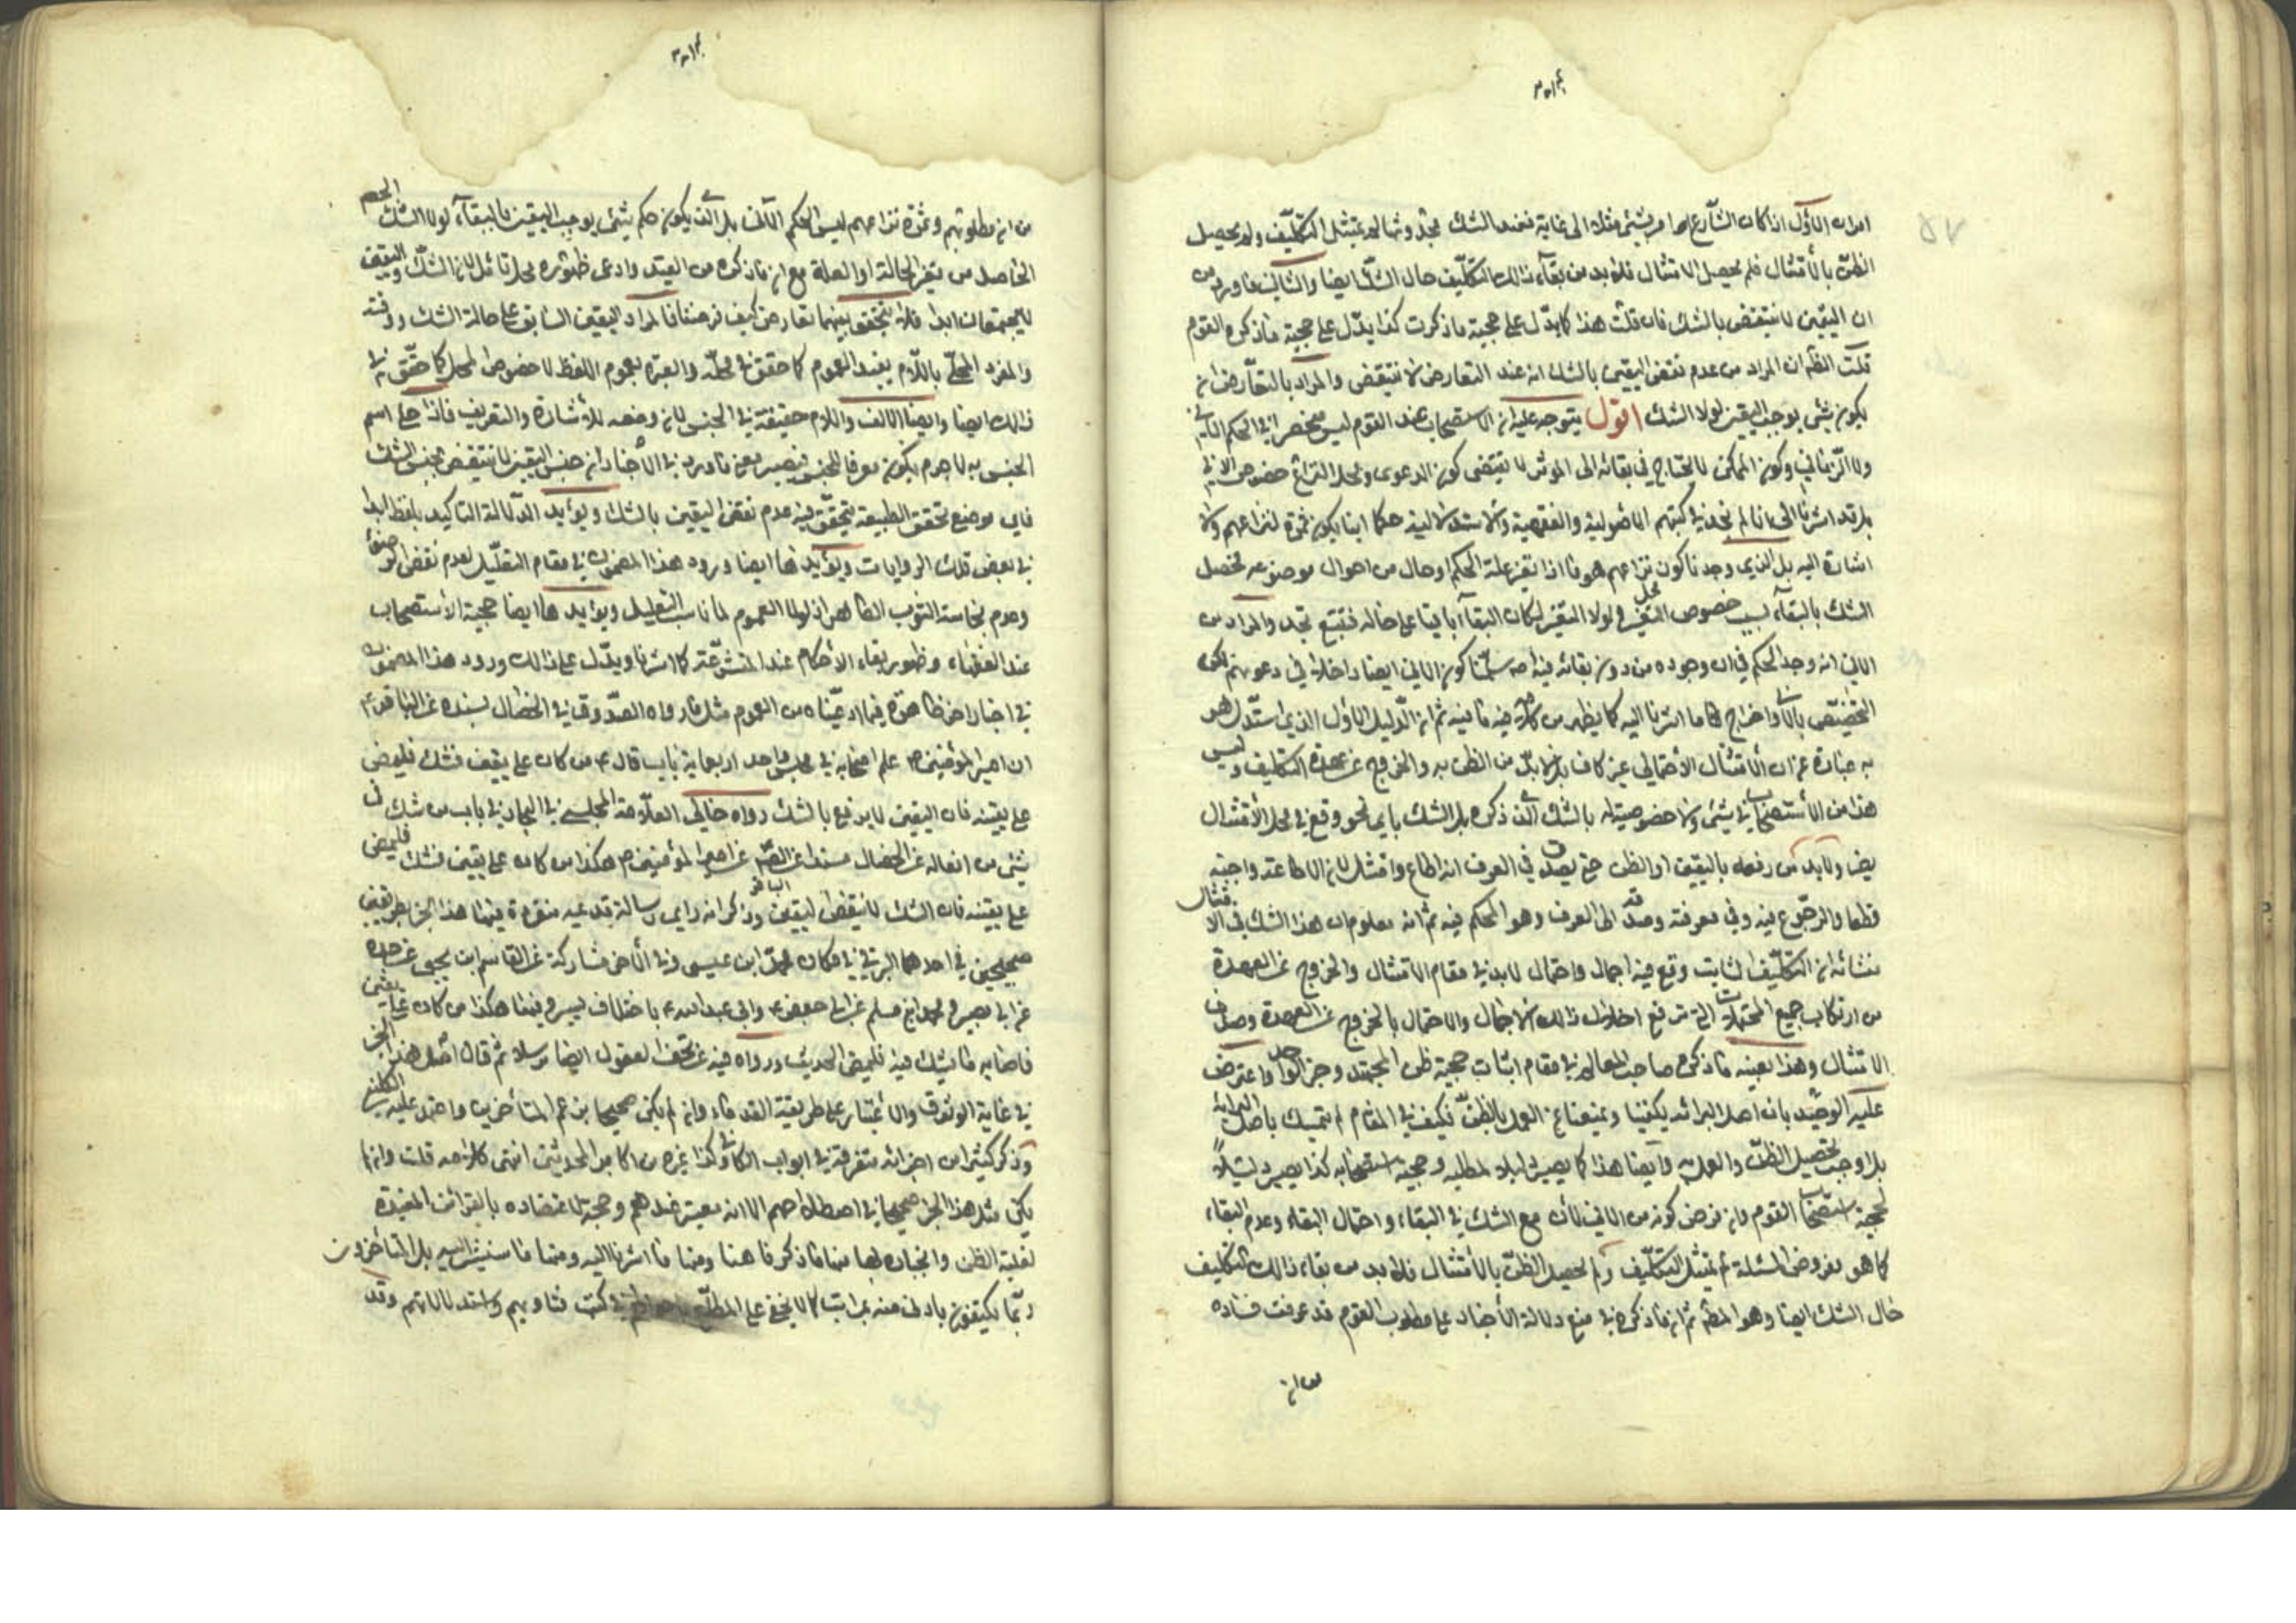 امران الاول اذا كان الشارع امر بشئ مثلا الى غاية فعند الشك بحدوثها لم يمتثل التكليف ولم يحصل
الظن بالامتثال فلم يحصل الامتثال فلا بد من بقاء ذلك التكليف حال الشك ايضا والثاني ما ورد من
ان اليقين لا ينتقض بالشك فان قلت هذا كما يدل على حجية ما ذكرت كذا يدل على حجية ما ذكره القوم
قلت الظ ان المراد من عدم نقض اليقين بالشك انه عند التعارض لا ينتقض والمراد بالتعارض ان
يكون شئ يوجب اليقين لولا الشك اقول يتوجه عليه ان الاستصحاب عند القوم ليس منحصرا في الحكم
وكون الممكن لا يحتاج في بقائه الى المؤثر لا يقتضي كون الدعوى ومحل النزاع خصوص
بل قد اشرنا الى انا لم نجد في كتبهم الاصولية والفقهية والاستدلالية حكما يكون ثمرة لنزاعهم ولا
اشارة اليه بل الذي وجدنا كون نزاعهم هو ما اذا تغير علة الحكم او حال من احوال موضوعه فحصل
الشك بالبقاء بسبب خصوص التغير ولولا التغير لكان البقاء باقيا على حاله فتتبع تجد والمراد من
انه وجد الحكم في ان وجوده من دون بقائه فيه سلمنا كون ايضا داخلا في دعوتهم لكن
التخصيص واخراج ما اشرنا اليه كما يظهر من كلامه فيه ما فيه ثم ان الدليل الاول الذي استدل هو
به عبارة عن ان الامتثال الاحتمالي غير كاف بل لا بد من الظن به والخروج عن عهدة التكليف وليس
هذا من الاستصحاب في شئ ولا خصوصية له بالشك الذي ذكره بل الشك باي نحو وقع في محل الامتثال
يضر ولا بد من رفعه باليقين او الظن حتى يصدق في العرف انه اطاع وامتثل لان الاطاعة واجبة
قطعا والرجوع فيه وفي معرفته وصدقه الى العرف وهو الحكم فيه ثم انه معلوم ان هذا الشك في الامتثال
منشائه ان التكليف الثابت وقع فيه اجمال واحتمال لا بد في مقام الامتثال والخروج عن العهدة
من ارتكاب جميع المحتملات التي ترفع اخلال ذلك الاجمال والاحتمال بالخروج عن العهدة وصدق
الامتثال وهذا بعينه ما ذكره صاحب المعالم في مقام اثبات حجية ظن المجتهد وخبر الواحد واعترض
عليه الوحيد بان اصل البرائة يكفينا ويمنعنا عن العمل بالظن فكيف في المقام لم يتمسك باصل البرائة
بل اوجب تحصيل الظن والعمل به وايضا هذا كما يصير دليلا لمطلبه وحجية استصحابه كذا يصير دليلا
لحجية استصحاب القوم وان فرض كونه من لأن مع الشك في البقاء واحتمال البقاء وعدم البقاء
كما هو مفروض المسئلة لم يمتثل التكليف ولم يحصل الظن بالامتثال فلا بد من بقاء ذلك التكليف
حال الشك ايضا وهو المط ثم ان ما ذكره في منع دلالة الاخبار على مطلوب القوم قد عرفت فساده
من ان مطلوبهم وثمرة نزاعهم ليس الحكم بل الذي يكون حكم بشئ يوجب اليقين بالبقاء لولا الشك
الحاصل من تغير الحالة او العلة مع ان ما ذكره من القيد وادعى ظهوره محل تأمل لان الشك واليقين
لا يجتمعان ابدا فلا يتحقق بينهما تعارض كيف فرضنا فالمراد اليقين السابق على حالة الشك ووقته
والمفرد المحلى باللام يفيد العموم كما حقق في محله والعبرة بعموم اللفظ لا خصوص المحل كما حقق في
ذلك ايضا وايضا الالف واللام حقيقة في الجنس لان وضعه للاشارة والتعريف فاذا دخل على اسم
الجنس به لا جرم يكون معرفا للجنس فيصير معنى ما ورد في الاخبار ان جنس اليقين لا ينتقض بجنس الشك
فاي موضع تحقق الطبيعة يتحقق فيه عدم نقض اليقين بالشك ويؤيد الدلالة التاكيد بلفظ ابدا
في بعض تلك الروايات ويؤيدها ايضا ورود هذا المضمون في مقام التعليل لعدم نقض الوضوء
وعدم نجاسة الثوب الطاهر اذ لولا العموم لما ناسب التعليل ويؤيدها ايضا حجية الاستصحاب
عند الفقهاء وظهور بقاء الاحكام عند المتشرعة كما اشرنا ويدل على ذلك ورود هذا المضمون
في اخبار اخر ظاهرة فيما ادعيناه من العموم مثل ما رواه الصدوق في الخصال بسنده عن الباقر ع
ان امير المؤمنين ع علم اصحابه في مجلس واحد اربعماية باب قال ع من كان على يقين فشك فليمض
على يقينه فان اليقين لا يدفع بالشك رواه خالي العلامة المجلسي في البحار في باب من شك في
شئ من افعاله عن الخصال مسندا عن الصم عن امير المؤمنين ع هكذا من كان على يقين فشك فليمض
على يقينه فان الشك لا ينقض اليقين وذكر انه راى رسالة قديمة مفردة فيها هذا الخبر بطريقين
صحيحين في احدهما في مكان محمد ابن عيسى وفي الاخر مشاركة عن القاسم ابن يحيى عن جده
عن ابي بصير ومحمد ابن مسلم عن ابي جعفر ع وابي عبد الله ع باختلاف يسير وفيهما هكذا من كان على يقين
فاصابه ما يشك فيه فليمض الحديث ورواه فيه عن تحف العقول ايضا مرسلا ثم قال اصل هذا الخبر
في غاية الوثوق والاعتبار على طريقة القدماء وان لم يكن صحيحا بزعم المتأخرين واعتمد عليه الكليني
وذكر كثيرا من اجزائه متفرقة في ابواب الكافي وكذا غيره من اكابر المحدثين انتهى كلامه قلت وان لم
يكن مثل هذا الخبر صحيحا في اصطلاحهم الا انه معتبر عندهم وحجة لاعتضاده بالقرائن المفيدة
لغلبة الظن وانجباره بها منها ما ذكر ههنا ومنها ما اشرنا اليه ومنها ما سنشير اليه بل المتأخرون
ربما يكتفون بادنى منه بمراتب كما لا يخفى على المطلع في كتب فتاويهم واستدلالاتهم وقد